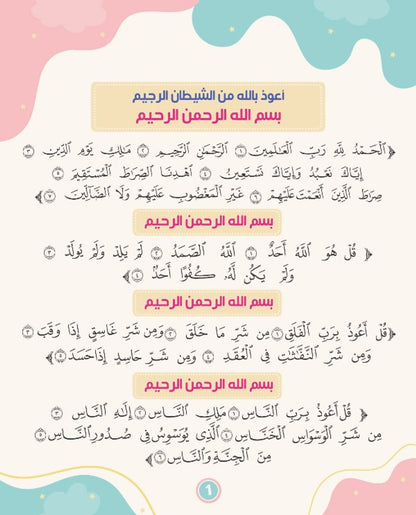 أعوذ بالله من الشيطان الرجيم
بسم الله الرحمن الرحيم
﴿ٱلْحَمْدُ لِلَّهِ رَبِّ ٱلْعَٰلَمِينَ ١ ٱلرَّحْمَٰنِ ٱلرَّحِيمِ ٢ مَٰلِكِ يَوْمِ ٱلدِّينِ ٣
إِيَّاكَ نَعْبُدُ وَإِيَّاكَ نَسْتَعِينُ ٤ ٱهْدِنَا ٱلصِّرَٰطَ ٱلْمُسْتَقِيمَ ٥
صِرَٰطَ ٱلَّذِينَ أَنْعَمْتَ عَلَيْهِمْ ٦ غَيْرِ ٱلْمَغْضُوبِ عَلَيْهِمْ وَلَا ٱلضَّآلِّينَ ٧﴾
بسم الله الرحمن الرحيم
﴿ قُلْ هُوَ ٱللَّهُ أَحَدٌ ١ ٱللَّهُ ٱلصَّمَدُ ٢ لَمْ يَلِدْ وَلَمْ يُولَدْ ٣
وَلَمْ يَكُن لَّهُۥ كُفُوًا أَحَدٌۢ ٤ ﴾
بسم الله الرحمن الرحيم
﴿قُلْ أَعُوذُ بِرَبِّ ٱلْفَلَقِ ١ مِن شَرِّ مَا خَلَقَ ٢ وَمِن شَرِّ غَاسِقٍ إِذَا وَقَبَ ٣
وَمِن شَرِّ ٱلنَّفَّٰثَٰتِ فِى ٱلْعُقَدِ ٤ وَمِن شَرِّ حَاسِدٍ إِذَا حَسَدَ ٥﴾
بسم الله الرحمن الرحيم
﴿ قُلْ أَعُوذُ بِرَبِّ ٱلنَّاسِ ١ مَلِكِ ٱلنَّاسِ ٢ إِلَٰهِ ٱلنَّاسِ ٣
مِن شَرِّ ٱلْوَسْوَاسِ ٱلْخَنَّاسِ ٤ ٱلَّذِى يُوَسْوِسُ فِى صُدُورِ ٱلنَّاسِ ٥
مِنَ ٱلْجِنَّةِ وَٱلنَّاسِ ٦ ﴾
1